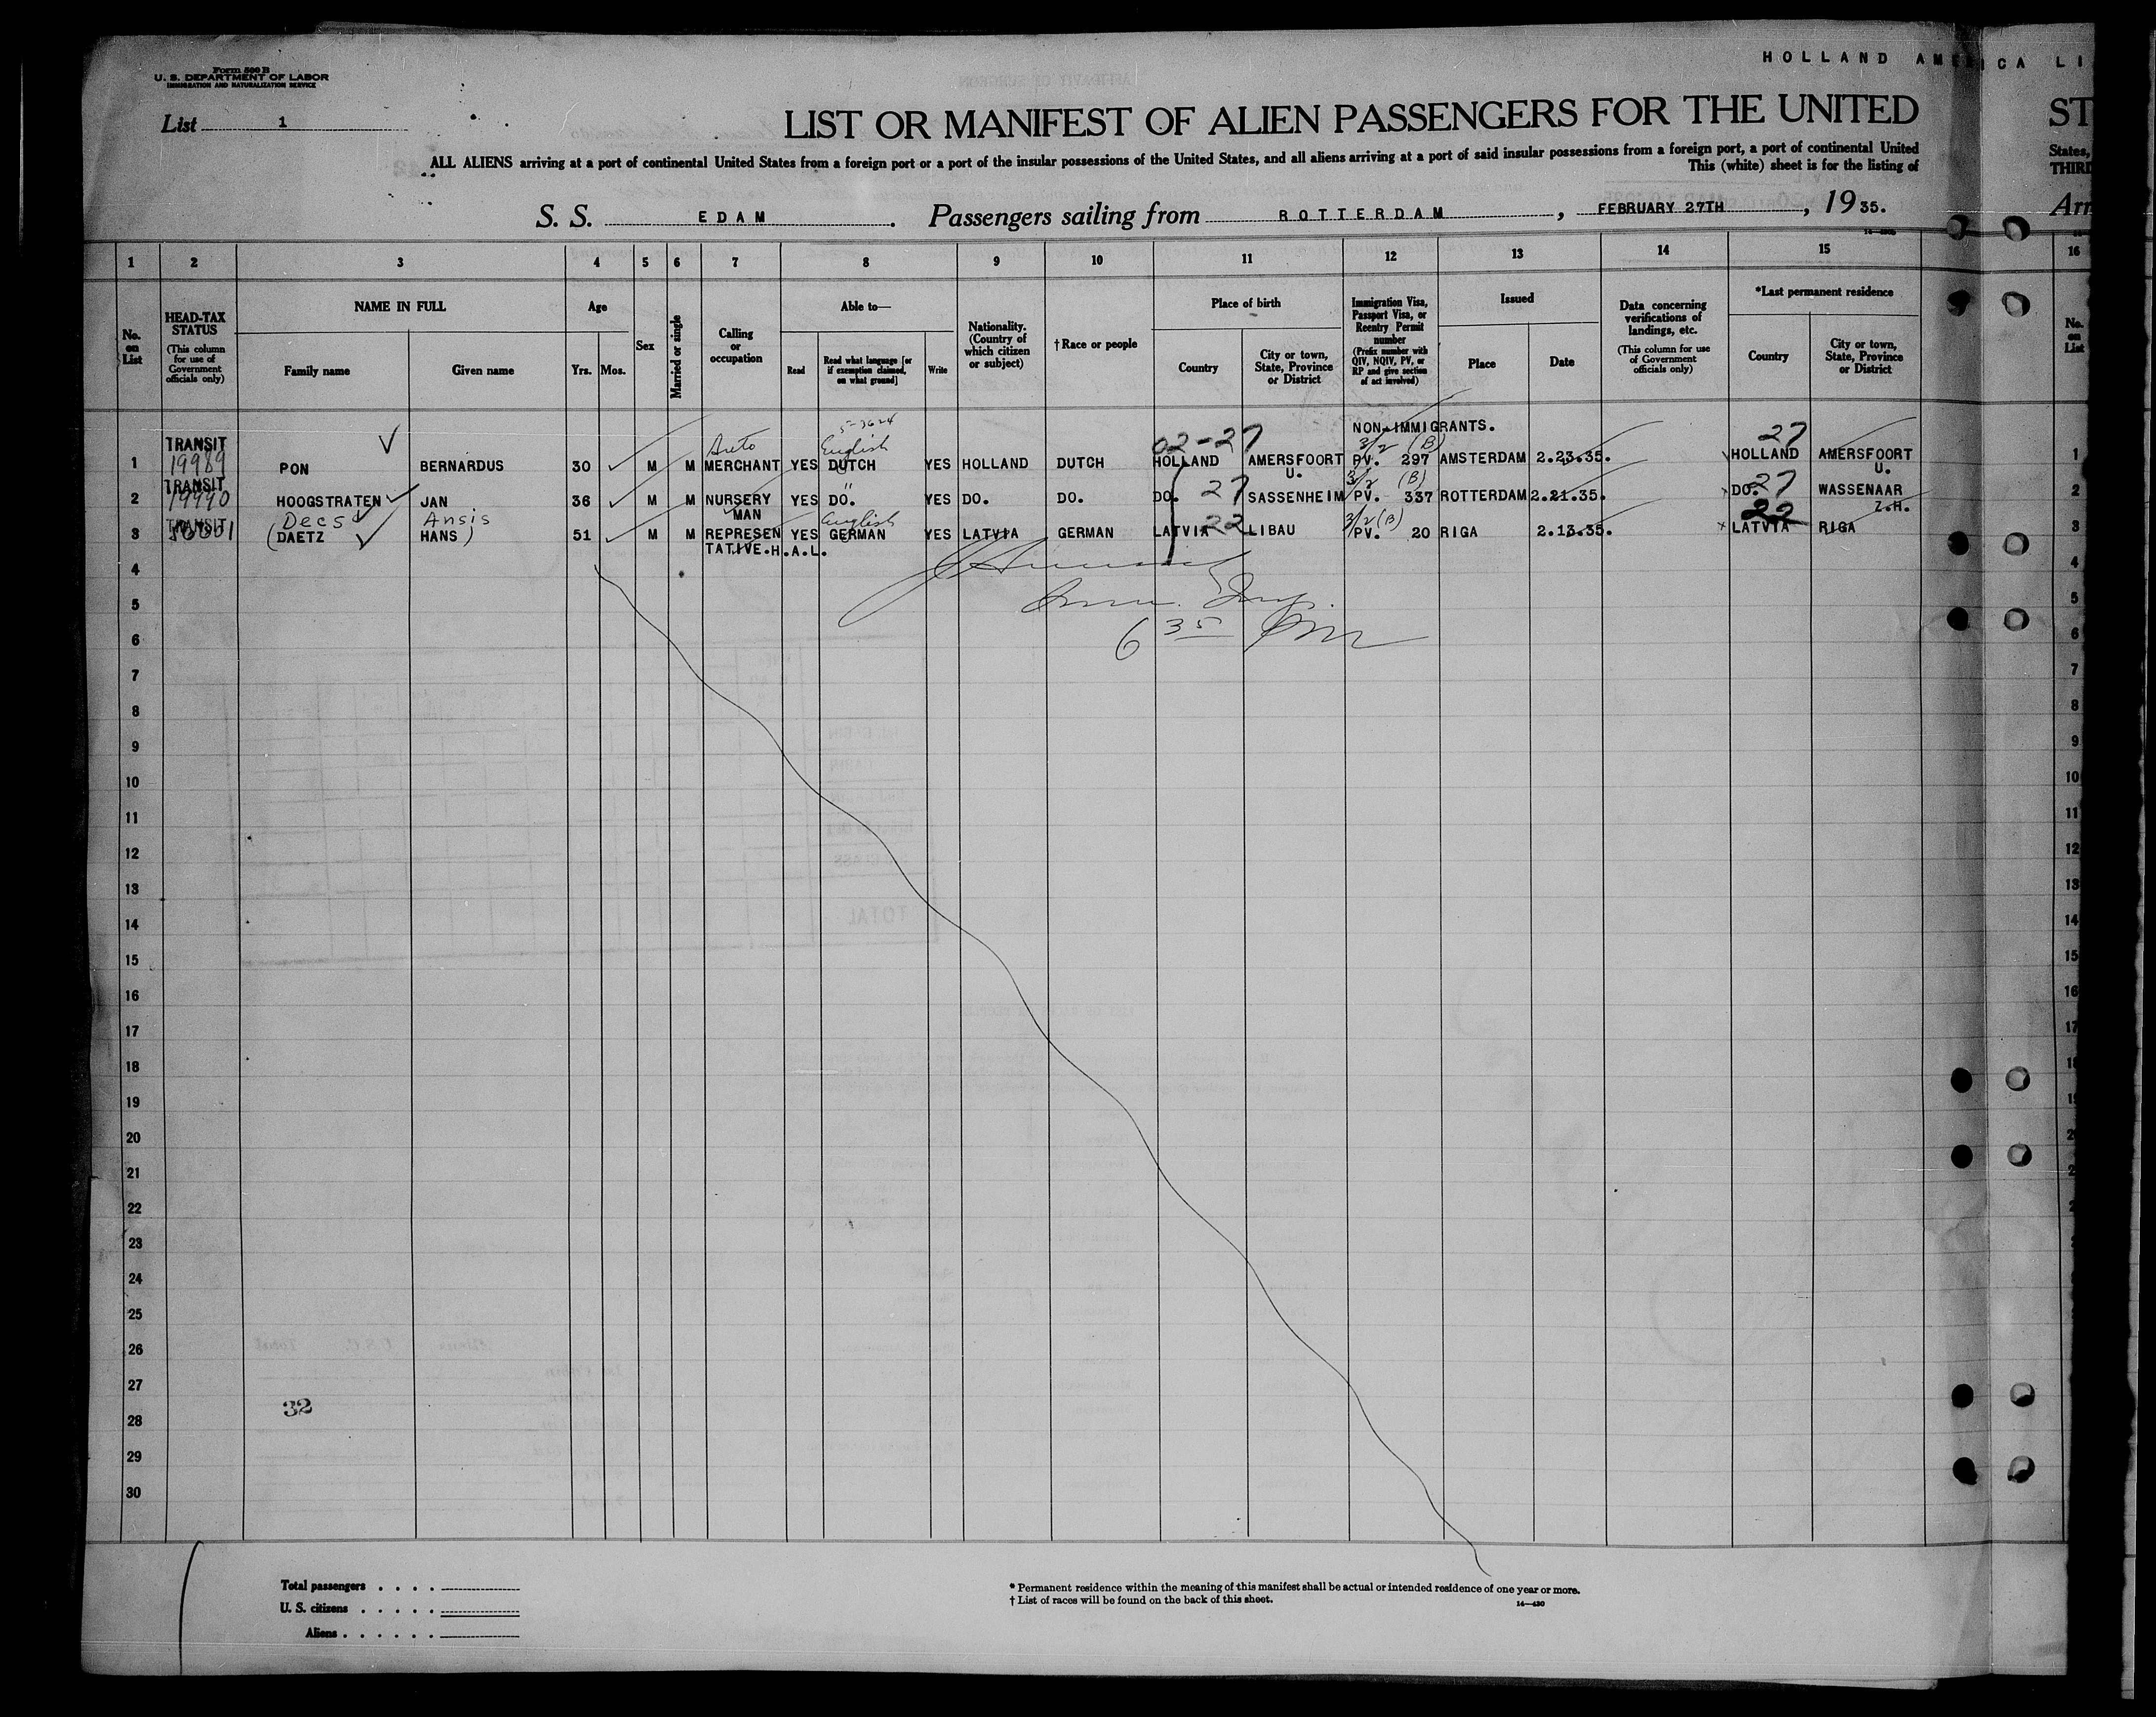 HOLLAND AMERICA LI
Form 500 B
U. S. DEPARTMENT OF LABOR
IMMIGRATION AND NATURALIZATION SERVICE
List 1
LIST OR MANIFEST OF ALIEN PASSENGERS FOR THE UNITED ST
ALL ALIENS arriving at a port of continental United States from a foreign port or a port of the insular possessions of the United States, and all aliens arriving at a port of said insular possessions from a foreign port, a port of continental United States,
This (white) sheet is for the listing of THIRD
S. S. EDAM. Passengers sailing from ROTTERDAM, FEBRUARY 27TH, 1935. Arr
1 2 3 4 5 6 7 8 9 10 11 12 13 14 15 16
No. on List
HEAD-TAX STATUS (This column for use of Government officials only)
NAME IN FULL
Family name
Given name
Age
Yrs. Mos.
Sex
Married or single
Calling or occupation
Able to—
Read
Read what language [or if exemption claimed, on what ground]
Write
Nationality. (Country of which citizen or subject)
†Race or people
Place of birth
Country
City or town, State, Province or District
Immigration Visa, Passport Visa, or Reentry Permit number (Prefix number with QIV, NQIV, PV, or RP and give section of act involved)
Issued
Place
Date
Data concerning verifications of landings, etc. (This column for use of Government officials only)
*Last permanent residence
Country
City or town, State, Province or District
No. on List
NON-IMMIGRANTS.
TRANSIT Auto English 02-27 3/2 (B) 27
1 19989 PON BERNARDUS 30 M M MERCHANT YES DUTCH YES HOLLAND DUTCH HOLLAND AMERSFOORT U. PV. 297 AMSTERDAM 2.23.35. HOLLAND AMERSFOORT U. 1
TRANSIT " 27 3/2 (B) 27
2 19990 HOOGSTRATEN JAN 36 M M NURSERY MAN YES DO. YES DO. DO. DO. SASSENHEIM PV. 337 ROTTERDAM 2.21.35. DO. WASSENAAR Z.H. 2
TRANSIT Decs Ansis English 22 3/2 (B) 22
3 (DAETZ HANS) 51 M M REPRESEN YES GERMAN YES LATVIA GERMAN LATVIA LIBAU PV. 20 RIGA 2.13.35. LATVIA RIGA 3
TATIVE.H.A.L.
4 4
5 5
6 6 35 PM 6
7 7
8 8
9 9
10 10
11 11
12 12
13 13
14 14
15 15
16 16
17 17
18
19
20
21
22
23
24
25
26
27
32
28
29
30
Total passengers . . . .
U. S. citizens . . . . .
Aliens . . . . . .
* Permanent residence within the meaning of this manifest shall be actual or intended residence of one year or more.
† List of races will be found on the back of this sheet.
14—430